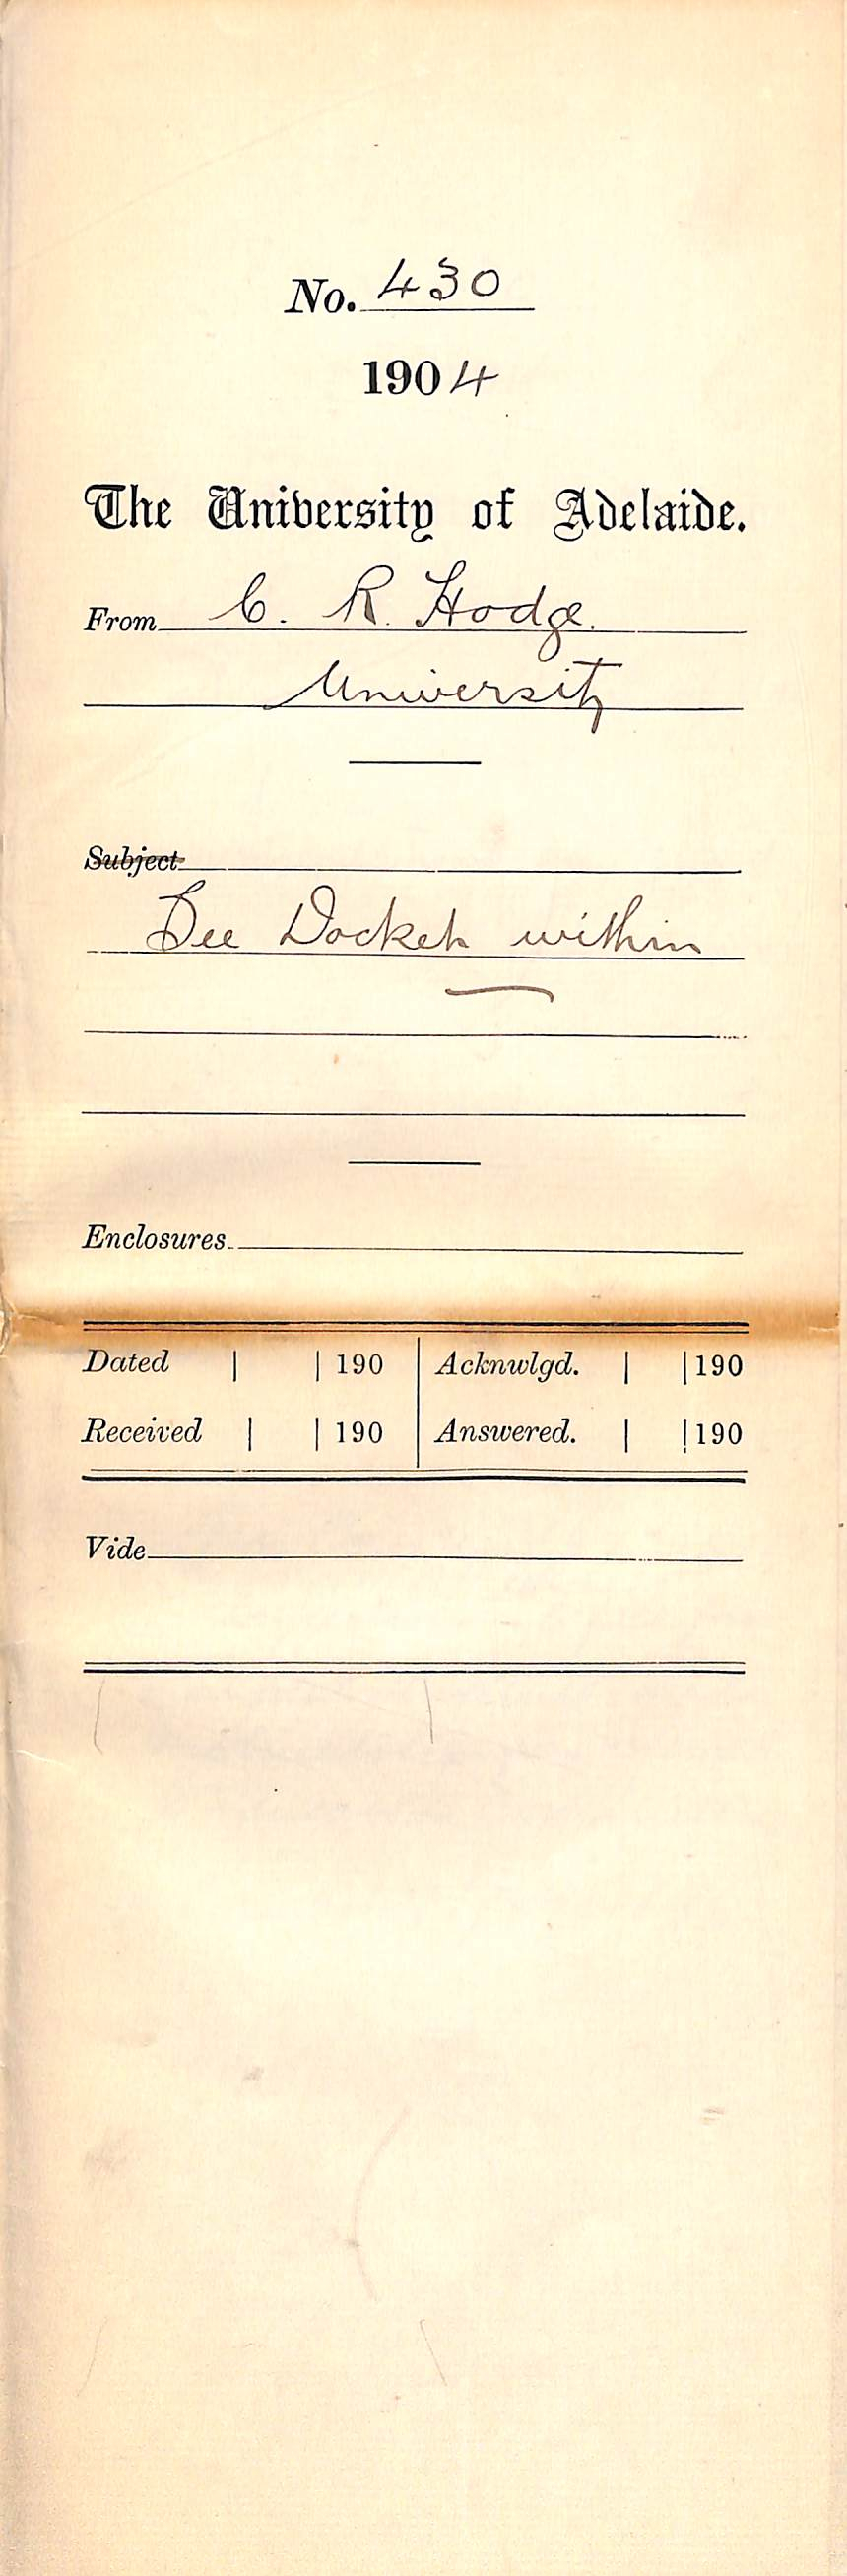 No. 430
1904
The University of Adelaide.
From C. R. Hodge.
University
Subject
See Docket within
Enclosures
Dated | | 190 Acknwlgd. | | 190
Received | | 190 Answered. | | 190
Vide